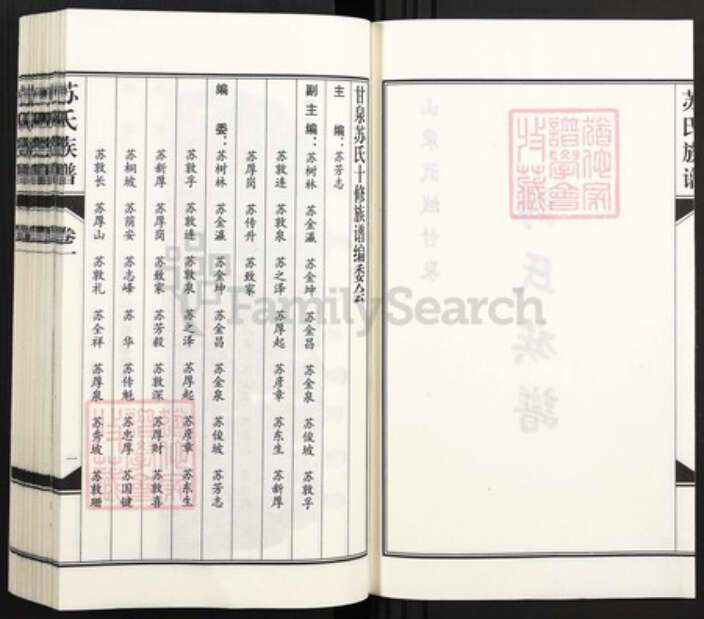 甘泉苏氏十修族谱编委会
主 编：苏芳志
副主编：苏树林 苏金瀛 苏金坤 苏金泉 苏俊坡 苏敦孚
苏敦连 苏敦泉 苏之泽 苏厚起 苏彦章 苏东生 苏新厚
苏厚岗 苏传升 苏致家
编 委：苏树林 苏金瀛 苏金坤 苏金昌 苏金泉 苏俊坡 苏芳志
苏敦孚 苏敦连 苏敦泉 苏之泽 苏厚起 苏彦章 苏东生
苏新厚 苏厚岗 苏致家 苏芳毅 苏敦深 苏厚财 苏敦喜
苏桐坡 苏荫安 苏志峰 苏 华 苏传魁 苏忠厚 苏国键
苏敦长 苏厚山 苏敦礼 苏全祥 苏厚泉 苏秀坡 苏敦珊
苏氏族谱 卷一 一
苏氏族谱
山泉武城甘泉
氏族譜
FamilySearch